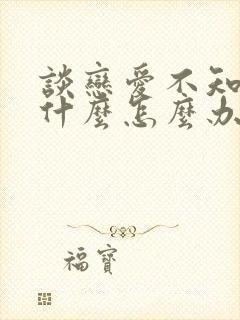 談戀愛不知
什麼怎麼办
福寶